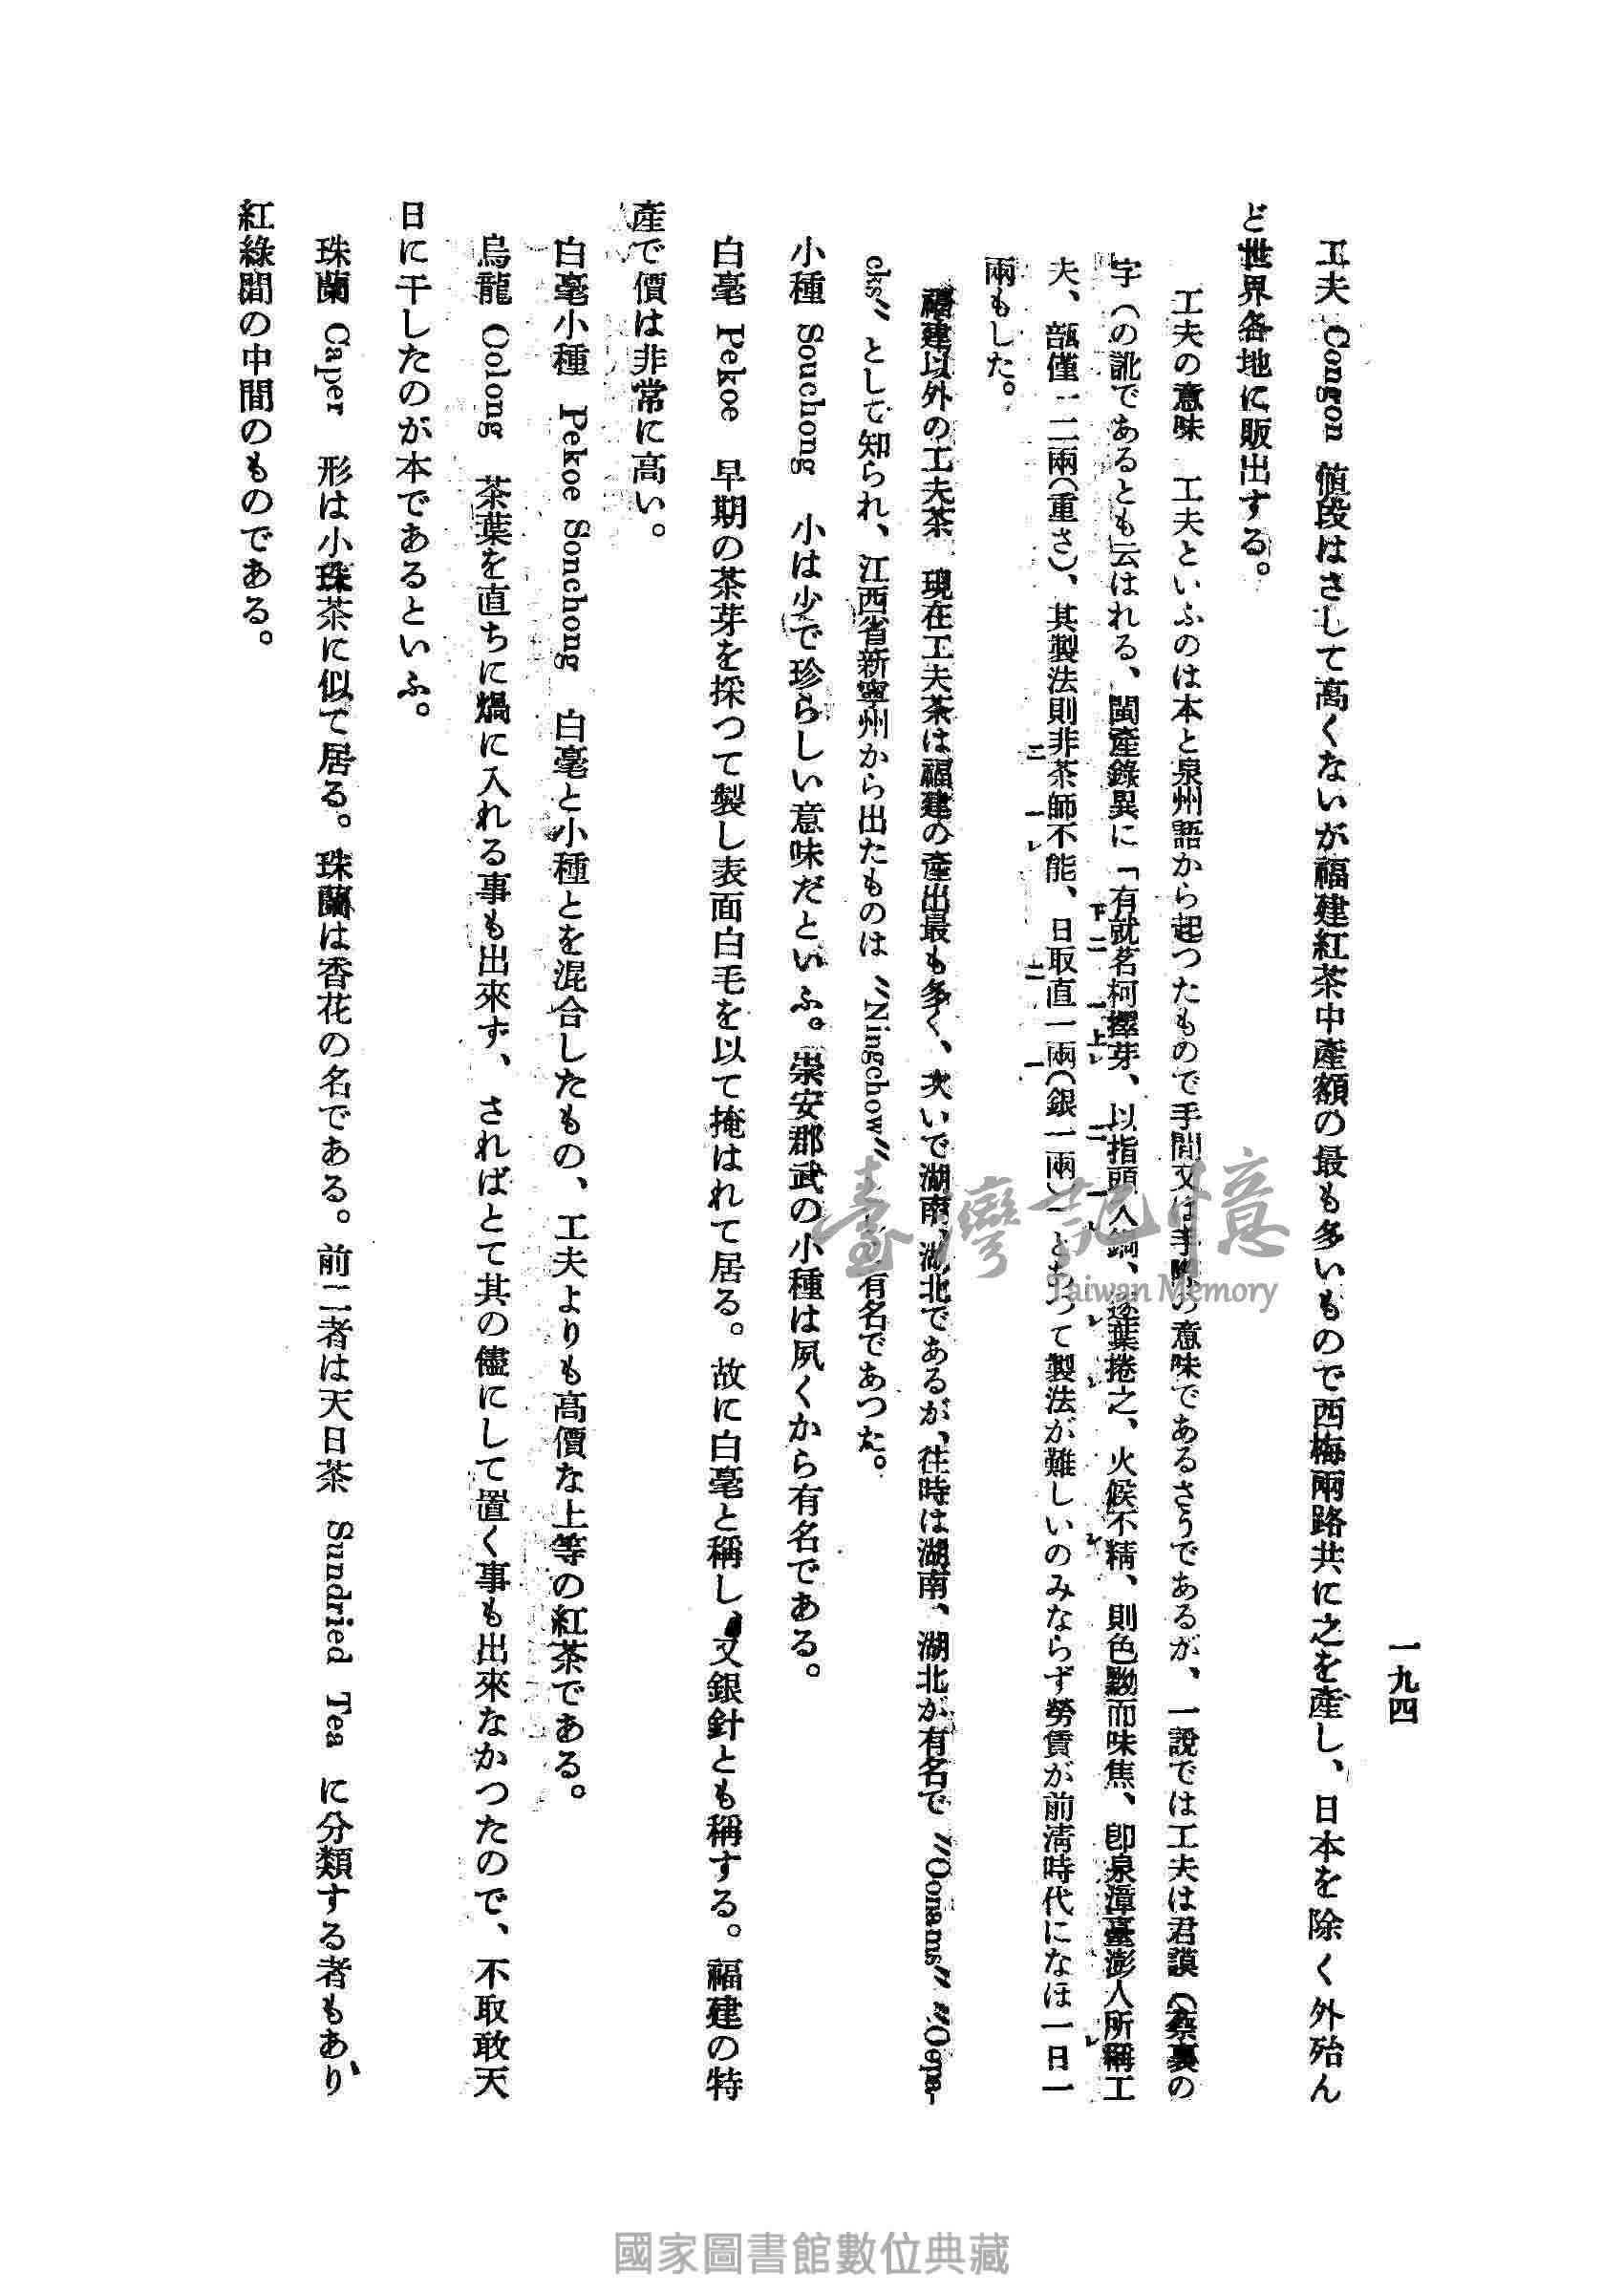 一九四
工夫 Congon 値段はさして高くないが福建紅茶中產額の最も多いもので西梅兩路共に之を產し、日本を除く外殆ん
ど世界各地に販出する。
工夫の意味 工夫といふのは本と泉州語から起つたもので手間又は手際の意味であるさうであるが、一說では工夫は君謨(蔡襄の
字(の訛であるとも云はれる、閩產錄異に「有就茗柯擇芽、以指頭入鍋、逐葉捲之、火候不精、則色黝而味焦、卽泉漳臺澎人所稱工
夫、瓿僅一二兩(重さ)、其製法則非茶師不能、日取直一兩(銀一兩)」とあつて製法が難しいのみならず勞賃が前淸時代になほ一日一
兩もした。
福建以外の工夫茶 現在工夫茶は福建の產出最も多く、次いで湖南、湖北であるが、往時は湖南、湖北が有名で "Oonams" "Oopa-
cks" として知られ、江西省新寧州から出たものは "Ningchow" 有名であつた。
小種 Souchong 小は少で珍らしい意味だといふ。崇安郡武の小種は夙くから有名である。
白毫 Pekoe 早期の茶芽を採つて製し表面白毛を以て掩はれて居る。故に白毫と稱し、又銀針とも稱する。福建の特
產で價は非常に高い。
白毫小種 Pekoe Sonchong 白毫と小種とを混合したもの、工夫よりも高價な上等の紅茶である。
烏龍 Oolong 茶葉を直ちに焬に入れる事も出來ず、さればとて其の儘にして置く事も出來なかつたので、不取敢天
日に干したのが本であるといふ。
珠蘭 Caper 形は小珠茶に似て居る。珠蘭は香花の名である。前二者は天日茶 Sundried Tea に分類する者もあり、
紅綠間の中間のものである。
臺灣記憶
Taiwan Memory
國家圖書館數位典藏